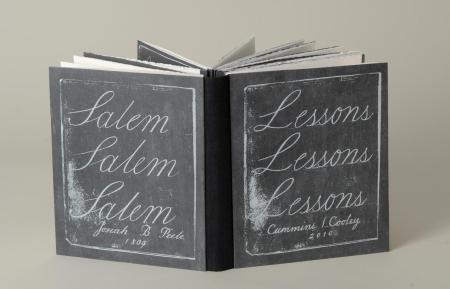 Salem
Salem
Salem
Josiah B Peele
1809
Lessons
Lessons
Lessons
Cummins / Cooley
2010